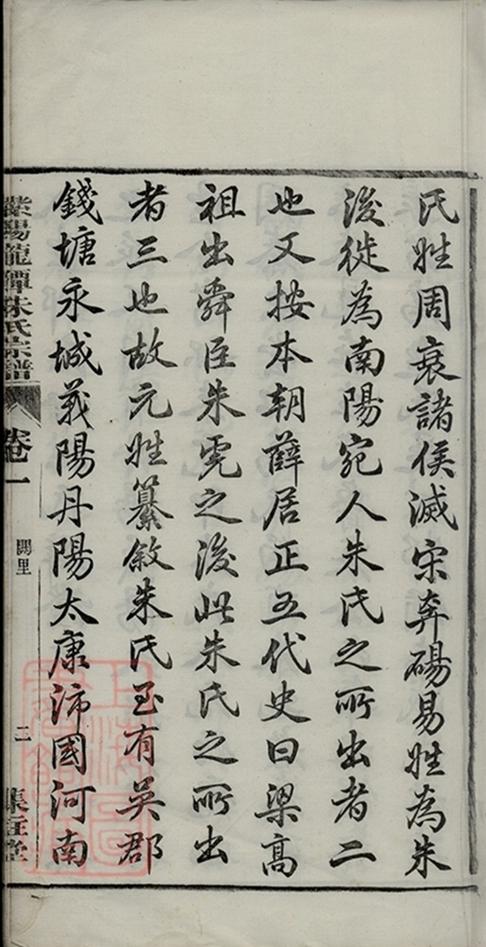 氏姓周衰諸侯滅宋奔碭易姓為朱
後徙為南陽宛人朱氏之所出者二
也又按本朝薛居正五代史曰梁高
祖出舜臣朱虎之後此朱氏之所出
者三也故元姓纂敘朱氏至有吳郡
錢塘永城義陽丹陽太康沛國河南
紫陽龍潭朱氏宗譜 卷一 闕里 二